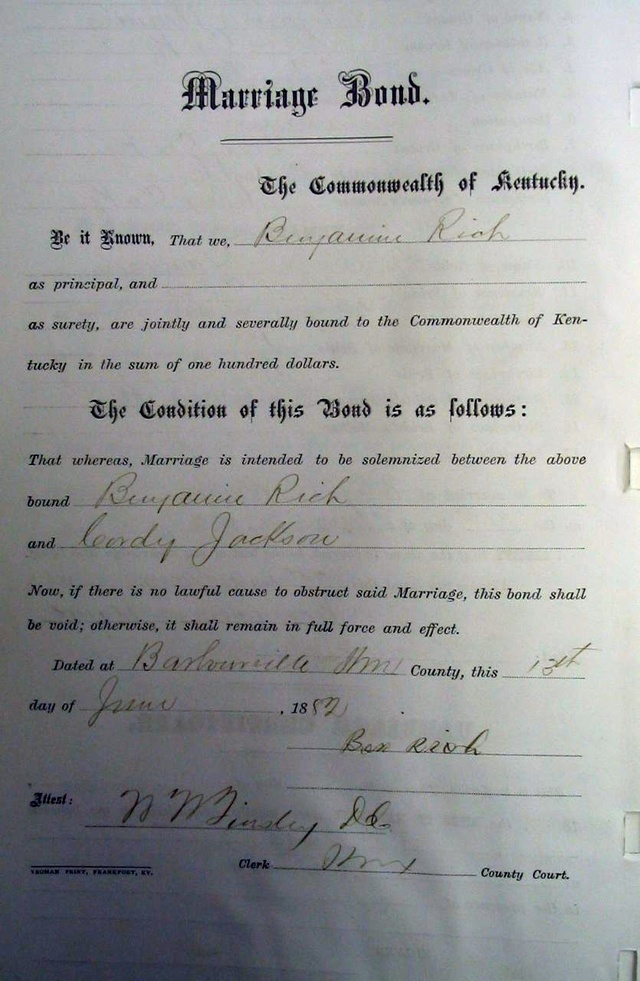 Marriage Bond.
The Commonwealth of Kentucky.
Be it Known, That we, Benjamin Rich
as principal, and
as surety, are jointly and severally bound to the Commonwealth of Ken-
tucky in the sum of one hundred dollars.
The Condition of this Bond is as follows:
That whereas, Marriage is intended to be solemnized between the above
bound Benjamin Rich
and Cordy Jackson
Now, if there is no lawful cause to obstruct said Marriage, this bond shall
be void; otherwise, it shall remain in full force and effect.
Dated at Barbourville Knox County, this
day of June, 1882
Ben Rich
Attest: W W Tinsley DC
Clerk Knox County Court.
YEOMAN PRINT, FRANKFORT, KY.